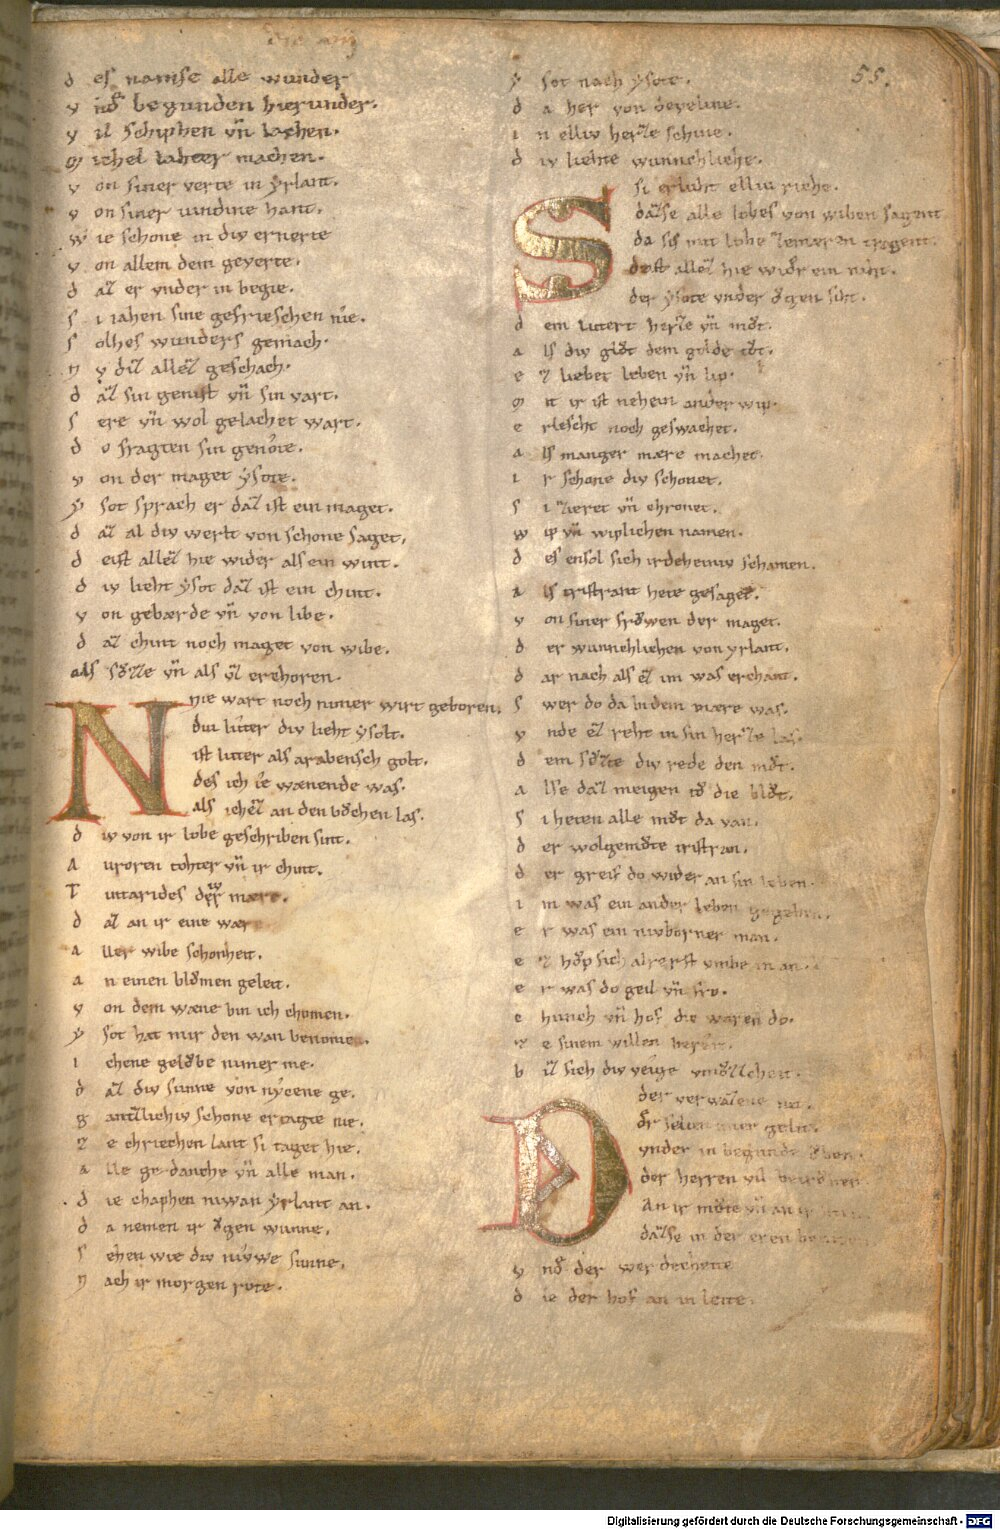 des namse alle wunder
vn̄ begunden hierunder.
vil schiphen vn̄ lachen.
michel lahter machen.
von siner verte in yrlant.
von siner uindine hant.
wie schone in div ernerte
von allem dem geverte.
daz er vnder in begie.
si iahen sine gefrieschen nie.
solhes wunders gemach.
nv diz allez geschach.
daz sin genist vn̄ sin vart.
sere vn̄ wol gelachet wart.
do fragten sin genoze.
von der maget ysote.
ysot sprach er daz ist ein maget.
daz al div werlt von schone saget.
deist allez hie wider als ein wint.
div lieht ysot daz ist ein chint.
von gebærde vn̄ von libe.
daz chint noch maget von wibe.
als suzze vn̄ als uz erchoren.
Nnie wart noch nimer wirt geboren.
diu luter div lieht ysolt.
ist luter als arabensch golt.
des ich ie wænende was.
als ichez an den bvͦchen las.
div von ir lobe geschriben sint.
Auroren tohter vn̄ ir chint.
Tintarides der mære.
daz an ir eine wære
aller wibe schonheit.
an einen blvͦmen geleit.
von dem wæne bin ich chomen.
ysot hat mir den wan benomen.
ichene gelǒbe nimer me.
daz div sunne von mycene ge.
gantzlichiv schone ertagte nie.
ze chriechen lant si taget hie.
alle gedanche vn̄ alle man.
die chaphen niwan yrlant an.
da nemen ir ǒgen wunne.
sehen wie div nivwe sunne.
nach ir morgen rote.
55.
ysot nach ysote.
da her von develine.
in elliv herze schine.
div liehte wunnechliche.
Ssi erluht elliu riche.
dazse alle lobes von wiben sagent
da si mit lobe zemæren tragent.
deist allez hie widr ein niht.
der ysote vnder ǒgen siht.
dem lutert herze vn̄ mvͦt.
als div glvͦt dem golde tvͦt.
ez lieber leben vn̄ lip.
mit ir ist nehein ander wip.
erlescht noch geswachet.
als manger mære machet.
ir schone div schonet.
si zieret vn̄ chronet.
wip vn̄ wiplichen namen.
des ensol sich irdeheiniv schamen.
als tristrant hete gesaget.
von siner frǒwen der maget.
der wunnechlichen von yrlant.
dar nach als ez im was erchant.
swer do da bi dem mære was.
vnde ez reht in sin herze las.
dem svͦzte div rede den mvͦt.
alse daz meigen tǒ die blvͦt.
si heten alle mvͦt da van.
der wolgemvͦte tristran.
der greif do wider an sin leben.
im was ein ander leben gegeben.
er was ein nivborner man.
ez hvͦp sich alrerst umbe in an.
er was do geil vn̄ fro.
chunch vn̄ hof die waren do.
ze sinem willen
biz sich div veige vnmvͦzzcheit.
Dder verwazene nit.
der selten imer gelit.
vnder in begunde vͦben.
der herren vil betrvͦben
an ir mvͦte vn̄ an ir
dazse in der eren
vnd der werdecheite
die der hof an in leite.
Digitalisierung gefördert durch die Deutsche Forschungsgemeinschaft - DFG